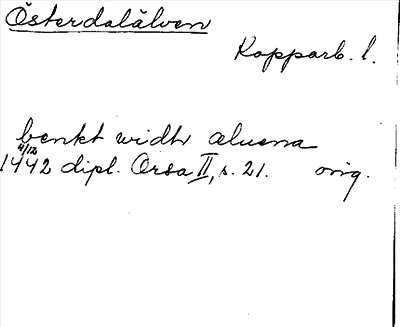 Österdalälven
Kopparb. l.
benkt widhr æluena
4/12
1442 dipl. Orsa II, s. 21. orig.